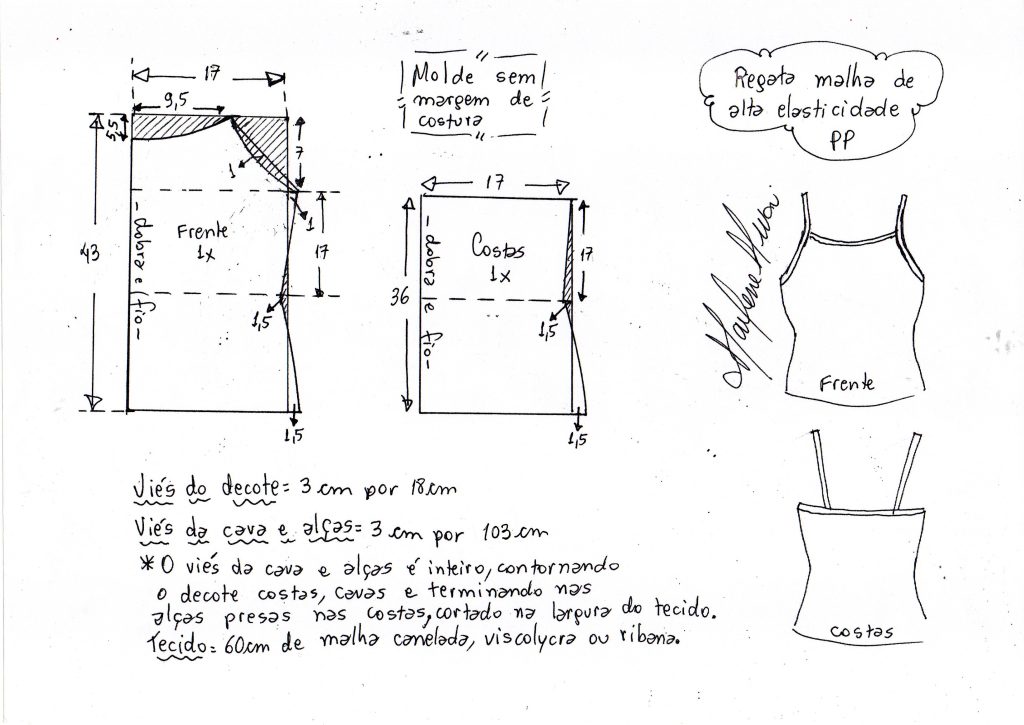 17
9,5
5,5
7
1
1
43
Frente
1x
- dobra e fio -
17
1,5
1,5
Molde sem
margem de
costura
17
36
Costas
1x
- dobra e fio -
17
1,5
1,5
Regata malha de
alta elasticidade
PP
Frente
costas
Viés do decote = 3 cm por 18 cm
Viés da cava e alças = 3 cm por 103 cm
* O viés da cava e alças é inteiro, contornando
o decote costas, cavas e terminando nas
alças presas nas costas, cortado na largura do tecido.
Tecido = 60cm de malha canelada, viscolycra ou ribana.